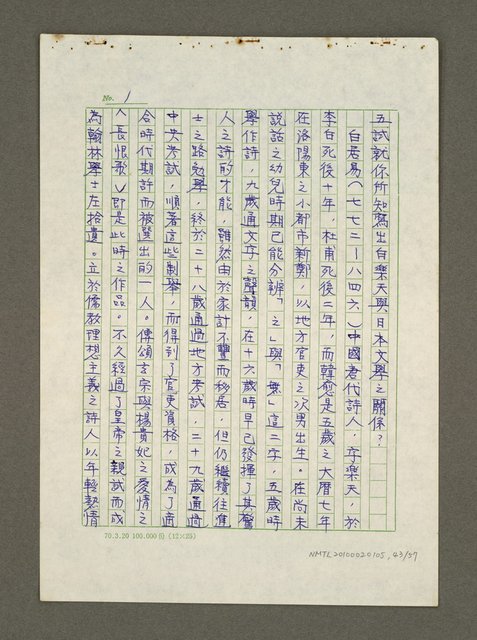 No. 1
五試就你所知寫出白樂天與日本文學之關係?
白居易(七七二—八四六)中國唐代詩人,字樂天,於
李白死後十年,杜甫死後二年,而韓愈是五歲之大曆七年
在洛陽東之小都市新鄭,以地方官吏之次男出生。在尚未
說話之幼兒時期已能分辨「之」與「無」這二字,五歲時
學作詩,九歲通文字之聲韻,在十六歲時早已發揮了其驚
人之詩的才能,雖然由於家計不豐而移居,但仍繼續往進
士之路勉學,終於二十八歲通過地方考試,二十九歲通過
中央考試,順著這些制舉,而得到了官吏資格,成為了適
合時代期許而被選出的一人。傳頌玄宗與楊貴妃之愛情之
〈長恨歌〉即是此時之作品。不久經過了皇帝之親試而成
為翰林學士左拾遺。立於儒教理想主義之詩人以年輕熱情
70.3.20 100.000份 (12×25)
NMTL20100020105, 43/57